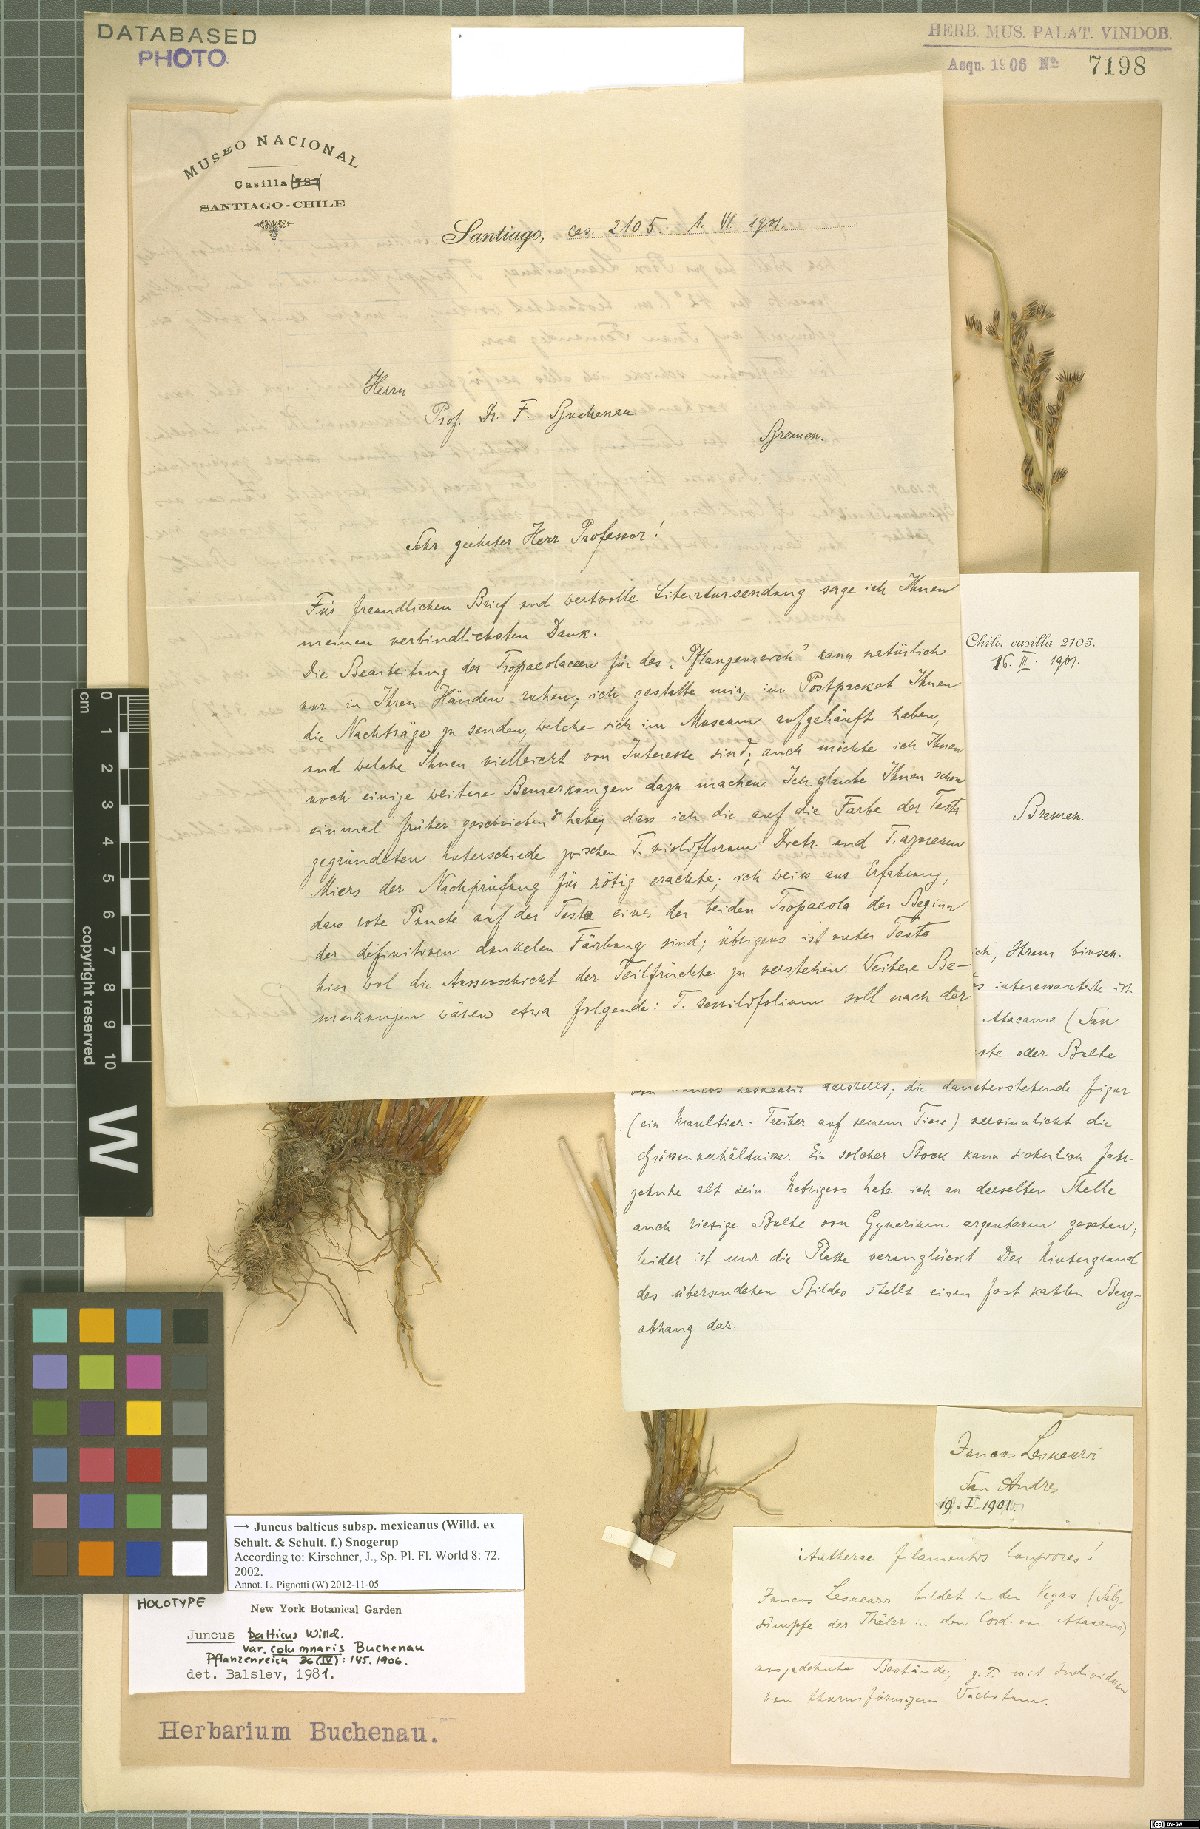 DATABASED
PHOTO
HERB. MUS. PALAT. VINDOB.
Acqu. 1906 No 7198
MUSEO NACIONAL
Casilla
SANTIAGO-CHILE
Santiago, cas. 2105. 1. VI 1901.
Herrn
Prof. Dr. F. Buchenau
Bremen.
Sehr geehrter Herr Professor!
Für freundlichen Brief und wertvolle Literatursendung sage ich Ihnen
meinen verbindlichsten Dank.
Die Bearbeitung der Tropaeolaceen für das „Pflanzenreich" kann natürlich
nur in Ihren Händen ruhen; ich gestatte mir, im Postpacket Ihnen
die Nachträge zu senden, welche sich im Museum aufgehäuft haben,
und welche Ihnen vielleicht von Interesse sind; auch möchte ich Ihnen
noch einige weitere Bemerkungen dazu machen. Ich glaube Ihnen schon
einmal früher geschrieben zu haben, dass ich die auf die Farbe der Testa
gegründeten Unterschiede zwischen T. violiflorum Dietr. und T. azureum
Miers der Nachprüfung für nötig erachte; ich weiss aus Erfahrung,
dass rote Puncte auf der Testa eines der beiden Tropaeola der Beginn
der definitiven dunkelen Färbung sind; übrigens ist unter Testa
hier wol die Aussenschicht der Teilfrüchte zu verstehen. Weitere Be-
merkungen wären etwa folgende: T. sessilifolium soll nach der
Chile. casilla 2105.
16. 1901.
Bremen.
ich, Ihrem binsen-
interessantste ist
Atacama (San
oder Bulte
darstellt; die danebenstehende Figur
(ein Maultier-Treiber auf seinem Tiere) versinnlicht die
Grössenverhältnisse. Ein solcher Stock kann sicherlich Jahr-
zehnte alt sein. Uebrigens habe ich an derselben Stelle
auch riesige Bulte von Gynerium argenteum gesehen;
leider ist mir die Platte verunglückt. Der Hintergrund
des übersendeten Bildes stellt einen fast kahlen Berg-
abhang dar
Juncus Lesueurii
San Andres
19. I. 1901.
Antherae filamentis longiores!
Juncus Lesueurii bildet in den Vegas (Salz-
sümpfe der Thäler in den Cord. von Atacama)
ausgedehnte Bestände, z. T. mit Individuen
von thurmförmigem Wachstum.
→ Juncus balticus subsp. mexicanus (Willd. ex
Schult. & Schult. f.) Snogerup
According to: Kirschner, J., Sp. Pl. Fl. World 8: 72.
2002.
Annot. L. Pignotti (W) 2012-11-05
HOLOTYPE
New York Botanical Garden
Juncus balticus Willd.
var. columnaris Buchenau
Pflanzenreich 36 (IV): 145. 1906.
det. Balslev, 1981.
Herbarium Buchenau.
cm
0
1
2
3
4
5
6
7
8
9
10
copyright reserved
W